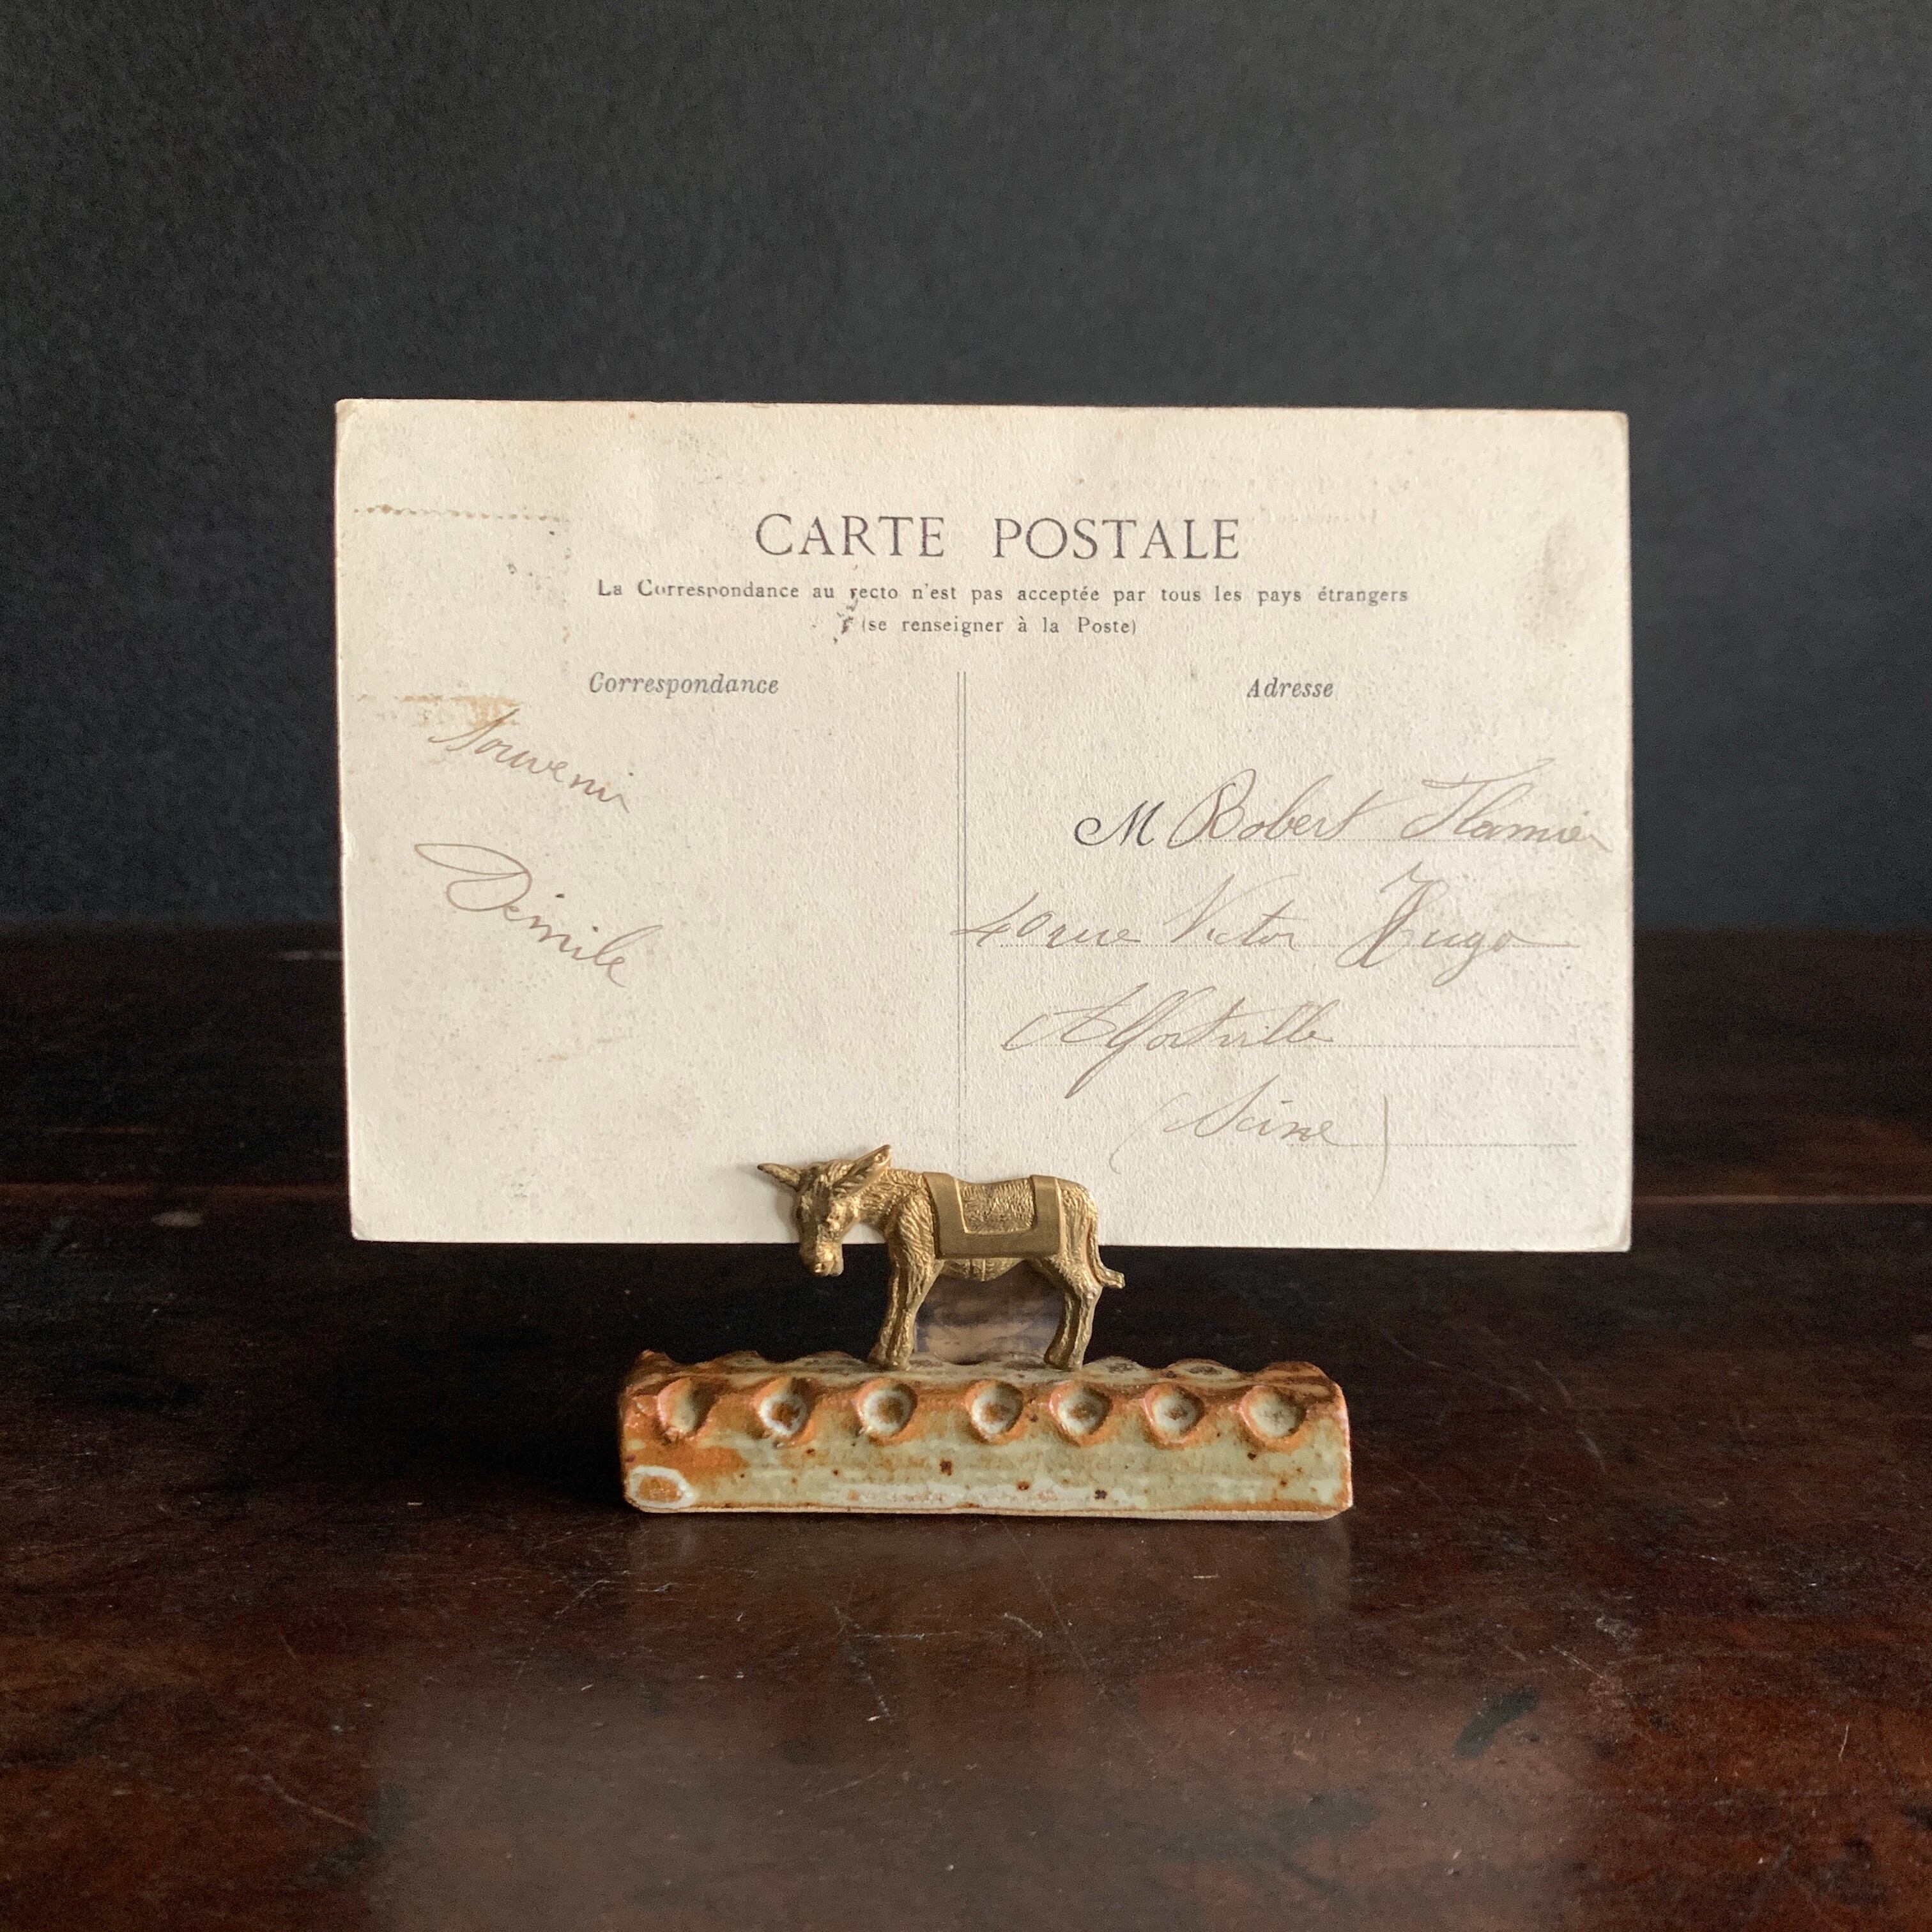 CARTE POSTALE
La Correspondance au recto n'est pas acceptée par tous les pays étrangers
(se renseigner à la Poste)
Correspondance
Souvenir
Adresse
M Robert
40 rue Victor Hugo
Alfortville
(Seine)